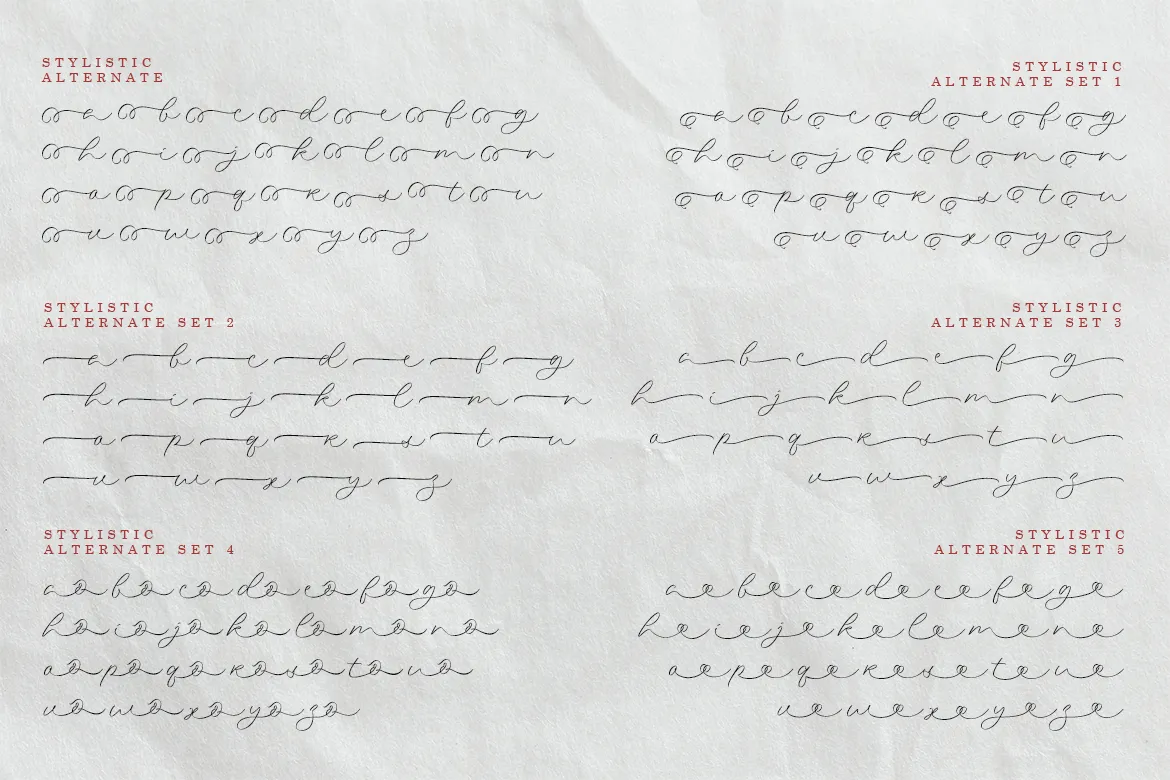 STYLISTIC
ALTERNATE
a b c d e f g
h i j k l m n
o p q r s t u
v w x y z
STYLISTIC
ALTERNATE SET 1
a b c d e f g
h i j k l m n
o p q r s t u
v w x y z
STYLISTIC
ALTERNATE SET 2
a b c d e f g
h i j k l m n
o p q r s t u
v w x y z
STYLISTIC
ALTERNATE SET 3
a b c d e f g
h i j k l m n
o p q r s t u
v w x y z
STYLISTIC
ALTERNATE SET 4
a b c d e f g
h i j k l m n
o p q r s t u
v w x y z
STYLISTIC
ALTERNATE SET 5
a b c d e f g
h i j k l m n
o p q r s t u
v w x y z